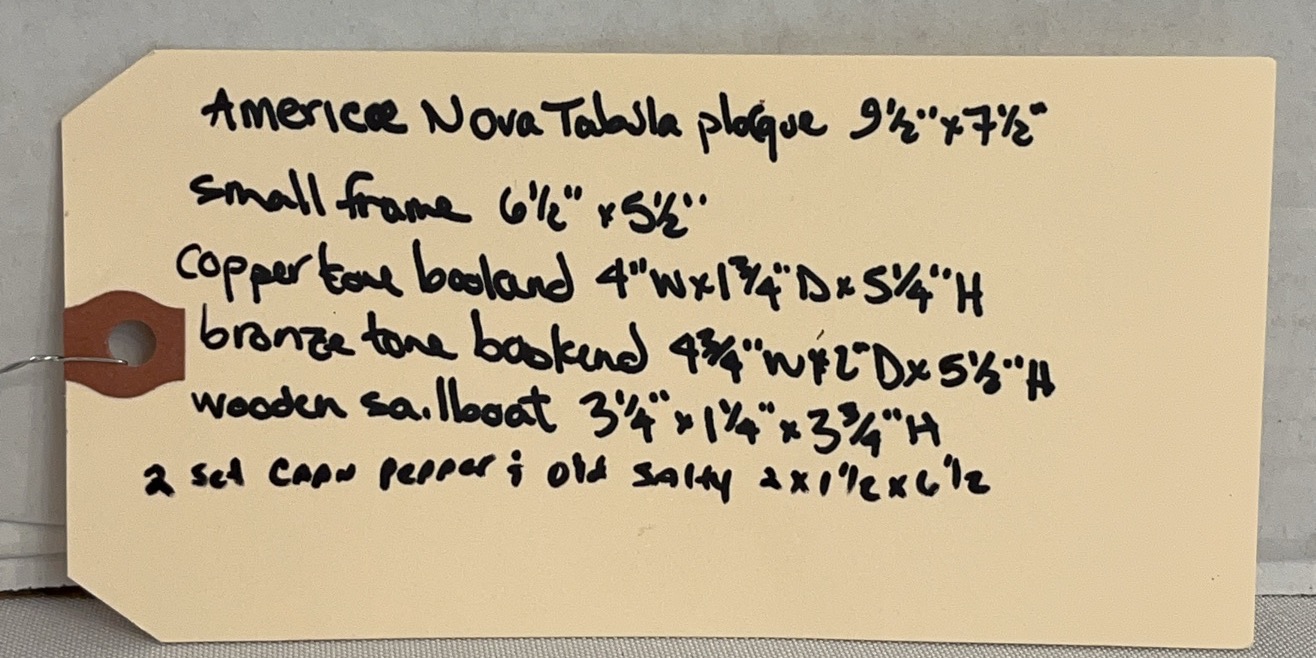 Americae Nova Tabula plaque 9½" x 7½"
small frame 6½" x 5½"
copper tone bookend 4" W x 1¾" D x 5¼" H
bronze tone bookend 4¾" W x 2" D x 5½" H
wooden sailboat 3¼" x 1¼" x 3¾" H
2 set CAPN Pepper & Old Salty 2 x 1½ x 6½